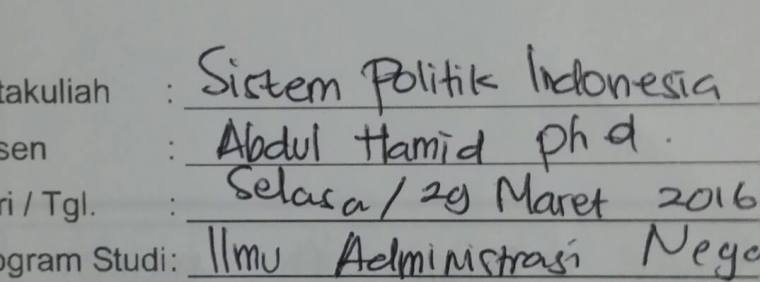 takuliah : Sistem Politik Indonesia
sen : Abdul Hamid ph d.
ri / Tgl. : Selasa / 29 Maret 2016
ogram Studi: Ilmu Administrasi Nega